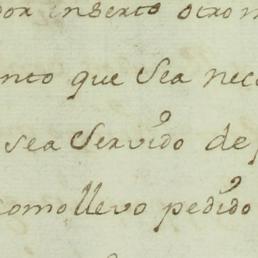 por inserto otro
nto que Sea nece
sea Servido de
como llevo pedido